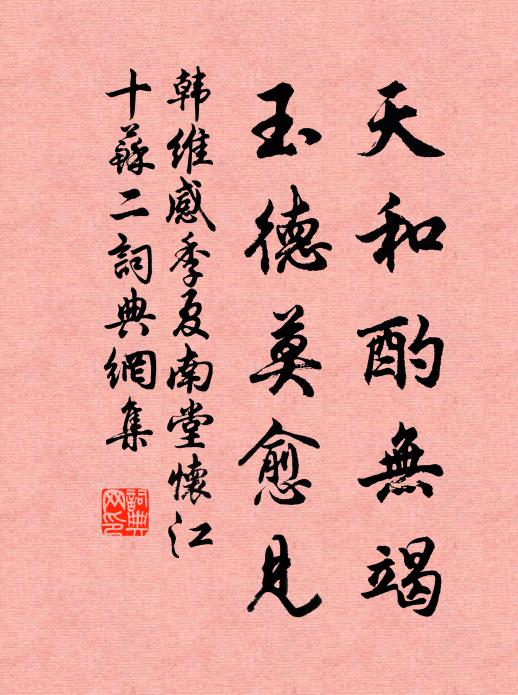 天和酌無竭
玉德莫愈見
韩维感季夏南堂懷江
十蘇二詞典網集
詞典網印